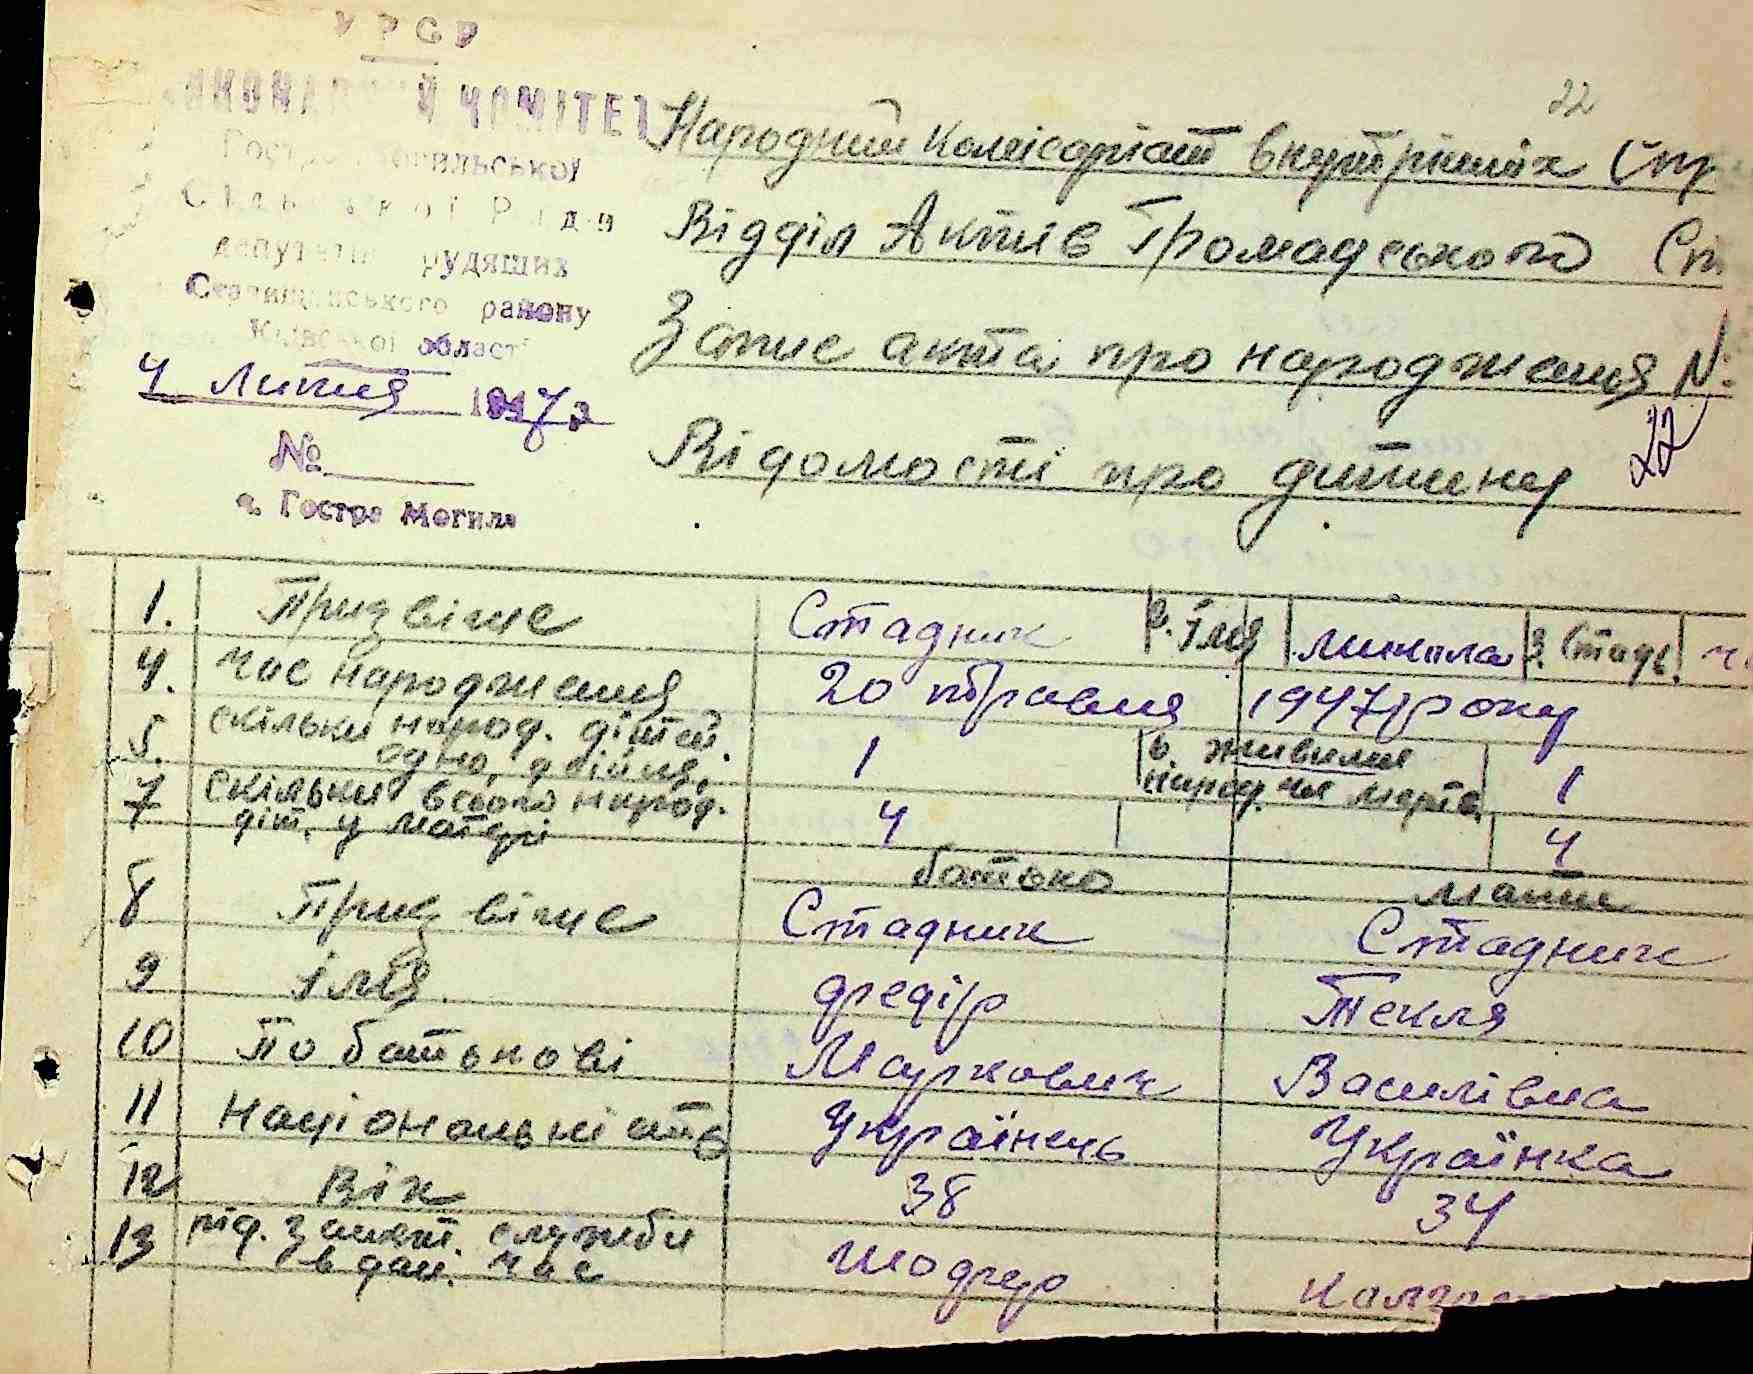 УРСР
ВИКОНАВЧИЙ КОМІТЕТ
Гостро-Могильської
Сільської Ради
депутатів трудящих
Ставищанського району
Київської області
4 липня 1947 р
№
с. Гостра Могила
22
Народний Комісаріат Внутрішніх Спр
Відділ Актив Громадського Ст
Запис акта про народження №
22
Відомості про дитину
1. Призвіще Стадник 2. Імя Микола 3. Стать ч
4. Час народження 20 травня 1947 року
5. скільки народ. дітей. одно, двійня, 1 6. живими народ. чи мертв. 1
7 скільки всього народ. діт. у матері 4 4
батько мати
8 Призвіще Стадник Стадник
9 Імя Федір Текля
10 По батькові Маркович Василівна
11 Національність Українець Українка
12 Вік 38 34
13 рід. занят. служби в дан. час Шофер